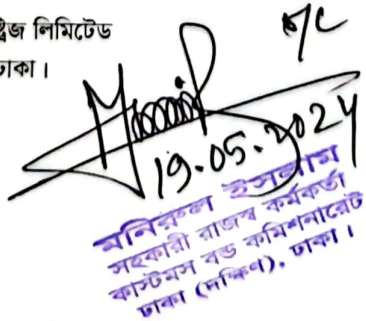 ্ট্রিজ লিমিটেড
ঢাকা।
19.05.2024
মনিরুল ইসলাম
সহকারী রাজস্ব কর্মকর্তা
কাস্টমস বন্ড কমিশনারেট
ঢাকা (দক্ষিণ), ঢাকা।